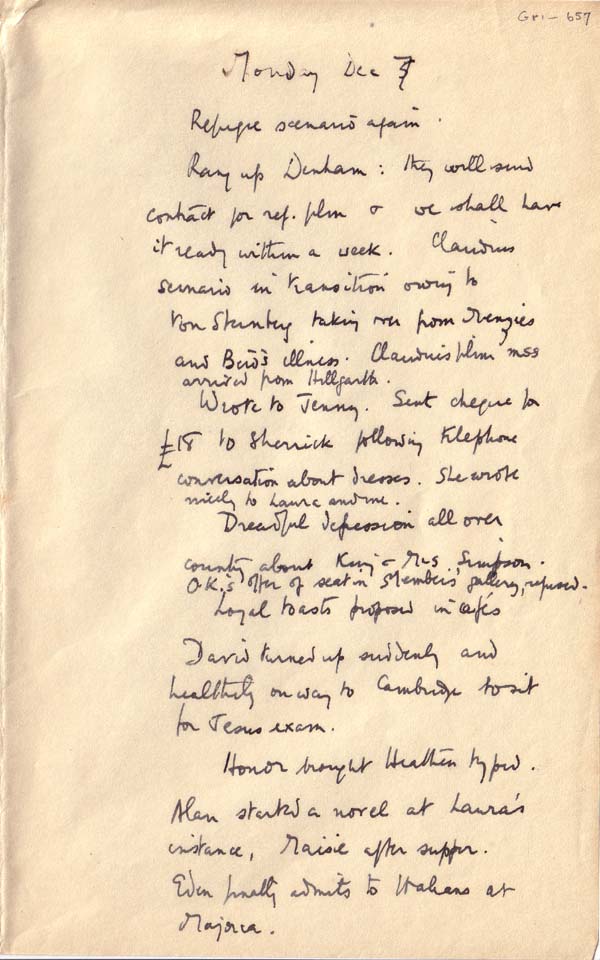 GRI - 657
Monday Dec 7
Refugee scenario again.
Rang up Denham: they will send
contract for ref. film & we shall have
it ready within a week. Claudius
scenario in transition owing to
Von Sternberg taking over from Menzies
and Bird's illness. Claudius film mss
arrived from Hillgarth.
Wrote to Jenny. Sent cheque for
£18 to Sherrick following telephone
conversation about dresses. She wrote
nicely to Laura and me.
Dreadful depression all over
country about King & Mrs Simpson.
O.K.'s offer of seat in Members' gallery, refused.
Loyal toasts proposed in cafés
David turned up suddenly and
healthily on way to Cambridge to sit
for Jesus exam.
Honor brought Heathen typed.
Alan started a novel at Laura's
instance, Maisie after supper.
Eden finally admits to Italians at
Majorca.